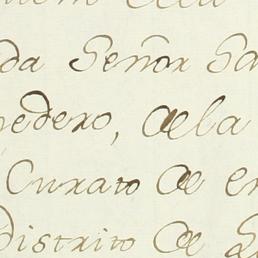 da Señor Sa
edero, de la
Curato de en
Distrito de